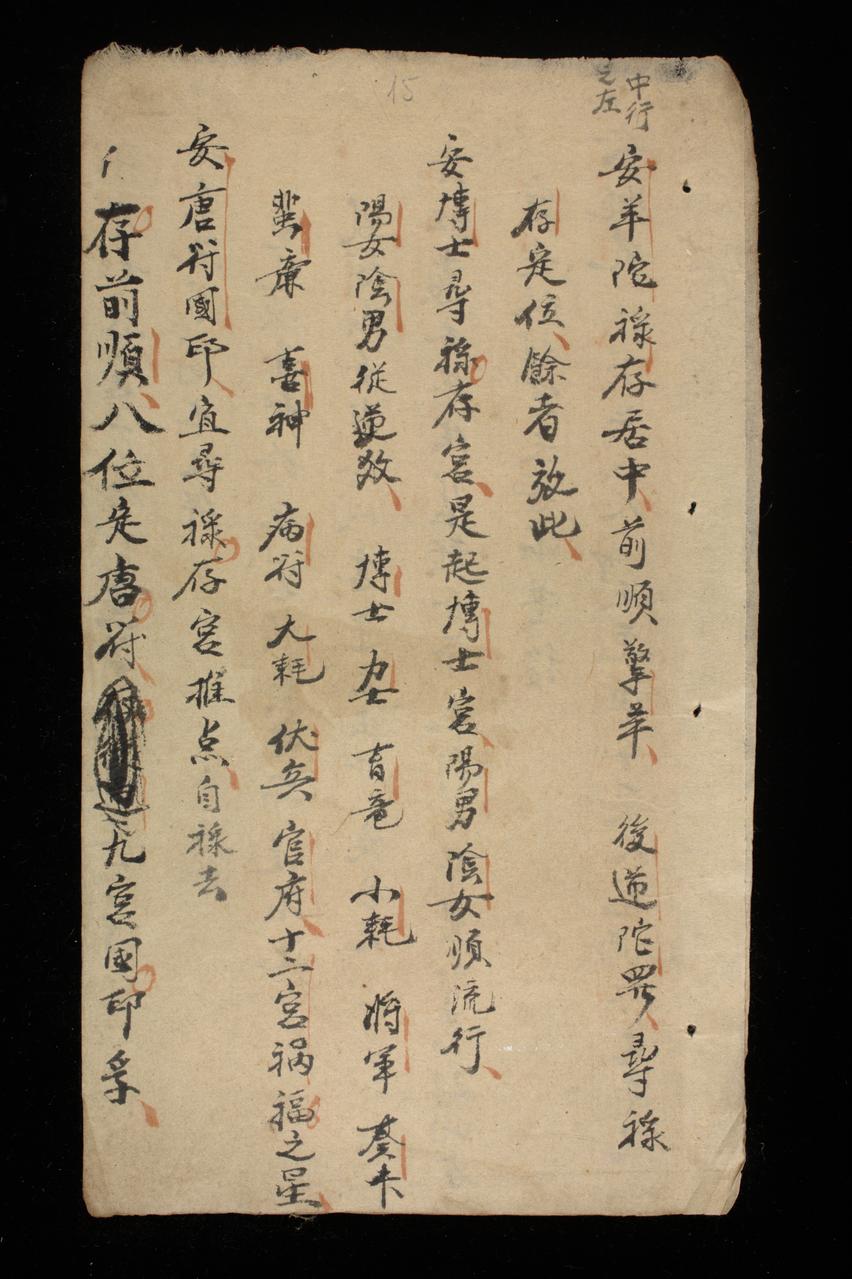 中行
之左
15
安羊陀祿存居中前順擎羊 後逆陀羅尋祿
存定位餘者放此
安博士尋祿存宮是起博士宮陽男陰女順流行
陽女陰男從逆数 博士 力士 青竜 小耗 將軍 奏
蜚廉 喜神 病符 大耗 伏兵 官府十二宮祸福之星
安唐符國印宜尋祿存宮推点自祿去
存前順八位定唐符 九宮國印